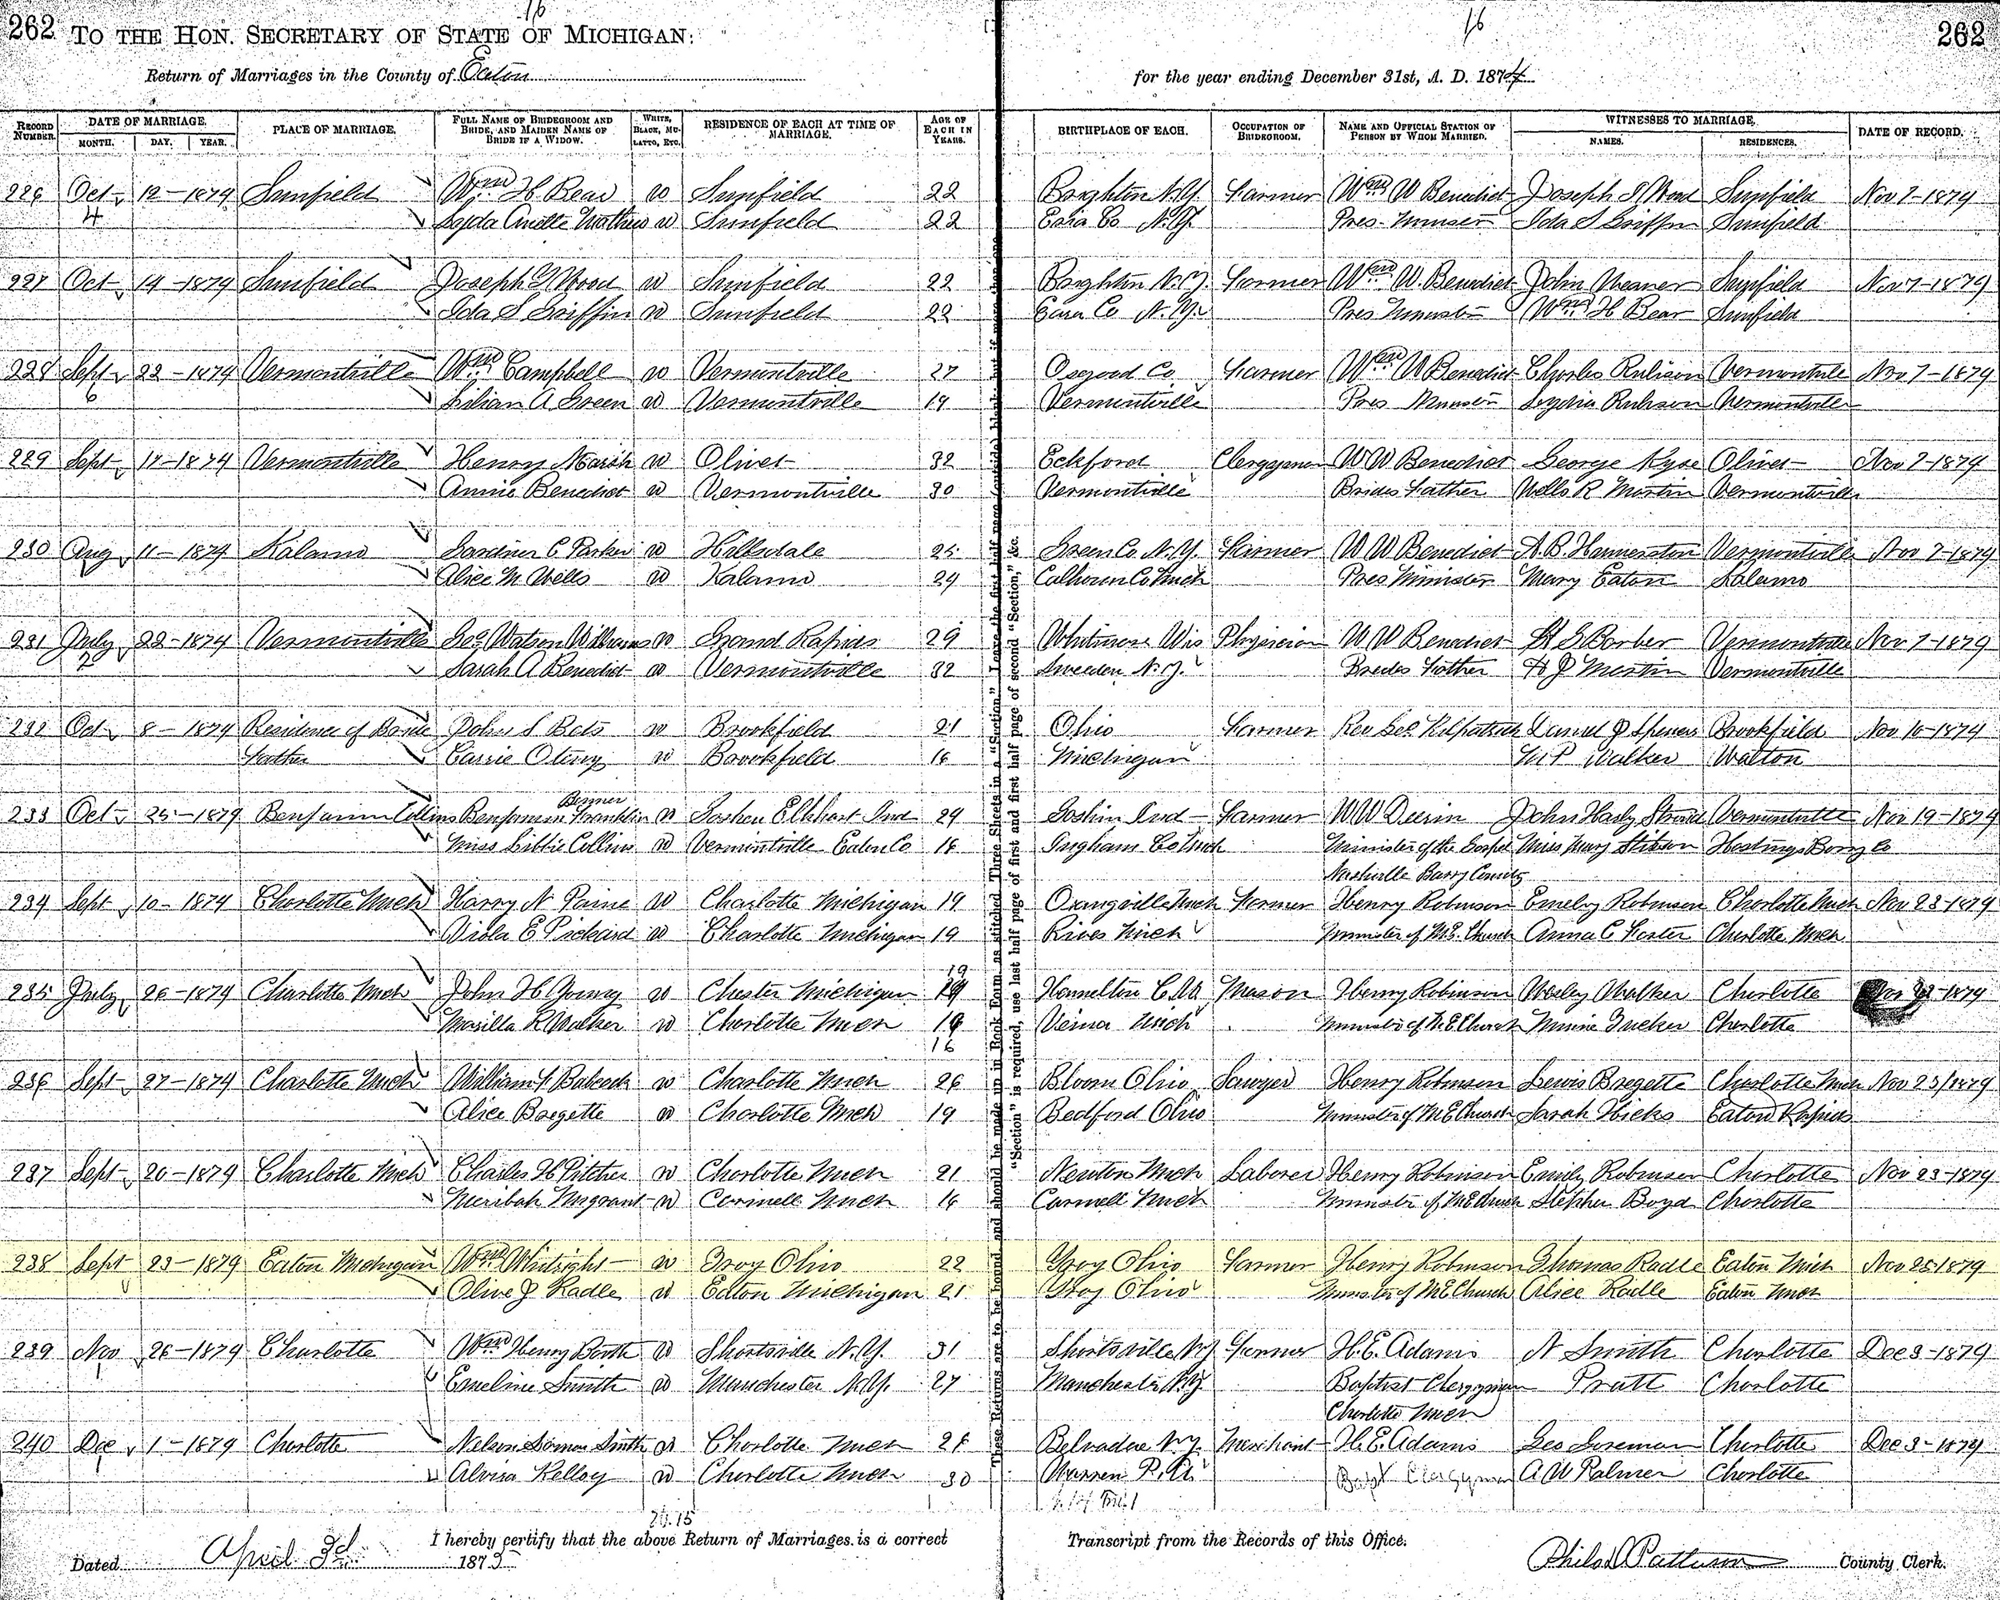 16 16
262 TO THE HON. SECRETARY OF STATE OF MICHIGAN: 262
Return of Marriages in the County of Eaton for the year ending December 31st, A. D. 1874
RECORD NUMBER. DATE OF MARRIAGE. MONTH. DAY. YEAR. PLACE OF MARRIAGE. FULL NAME OF BRIDEGROOM AND BRIDE, AND MAIDEN NAME OF BRIDE IF A WIDOW. WHITE, BLACK, MULATTO, ETC. RESIDENCE OF EACH AT TIME OF MARRIAGE. AGE OF EACH IN YEARS. BIRTHPLACE OF EACH. OCCUPATION OF BRIDEGROOM. NAME AND OFFICIAL STATION OF PERSON BY WHOM MARRIED. WITNESSES TO MARRIAGE. NAMES. RESIDENCES. DATE OF RECORD.
226 Oct 12-1874 Sunfield Wm H Bear w Sunfield 22 N.Y. Farmer Wm W Benedict Joseph Wood Sunfield Nov 7-1874
w Sunfield 22 Co N.Y. Pres. Minister Ida S Griffin Sunfield
227 Oct 14-1874 Sunfield Joseph Wood w Sunfield 22 N.Y. Farmer Wm W. Benedict John Sunfield Nov 7-1874
Ida S Griffin w Sunfield 22 Co N.Y. Pres Minister Wm H Bear Sunfield
228 Sept 22-1874 Vermontville Wm Campbell w Vermontville 27 Osgood Co Farmer Wm W Benedict Charles Rulison Vermontville Nov 7-1874
Lilian A Green w Vermontville 19 Vermontville Pres Minister Lydia Rulison Vermontville
229 Sept 17-1874 Vermontville Henry Marsh w Olivet 32 Eckford Clergyman W W Benedict George Kyse Olivet Nov 7-1874
Annie Benedict w Vermontville 30 Vermontville Brides Father Wells R Martin Vermontville
230 Aug 11-1874 Kalamo Gardiner C Parker w Hillsdale 25 Green Co N.Y. Farmer W W Benedict A.B. Vermontville Nov 7-1874
Alice M Wells w Kalamo 24 Calhoun Co Mich Pres Minister Mary Eaton Kalamo
231 July 22-1874 Vermontville Geo Watson Williams w Grand Rapids 29 Wis Physician W W Benedict Barber Vermontville Nov 7-1874
Sarah A Benedict w Vermontville 32 Sweeden N.Y. Brides Father H J Martin Vermontville
232 Oct 8-1874 Residence of Bride John S Bets w Brookfield 21 Ohio Farmer Rev Geo Kilpatrick Daniel J Brookfield Nov 16-1874
Father Carrie w Brookfield 16 Michigan Walker Walton
233 Oct 25-1874 Benjamin Collins Benjamin Franklin w Goshen Elkhart Ind 24 Goshin Ind Farmer W W John Vermontville Nov 19-1874
Miss Libbie Collins w Vermontville Eaton Co 16 Ingham Co Mich Minister of the Gospel Miss Mary Hastings Barry Co
Nashville Barry County
234 Sept 10-1874 Charlotte Mich Harry N Paine w Charlotte Michigan 19 Orangville Mich Farmer Henry Robinson Emely Robinson Charlotte Mich Nov 23-1874
Viola E Pickard w Charlotte Michigan 19 Rives Mich Minister of M.E. Church Anna C Charlotte Mich
19
235 July 26-1874 Charlotte Mich John H Young w Chester Michigan Mason Henry Robinson Wesley Walker Charlotte 1874
Marilla R Walker w Charlotte Mich Mich Minister of M E Church Minnie Tucker Charlotte
16
236 Sept 27-1874 Charlotte Mich William Babcock w Charlotte Mich 26 Bloom Ohio Sawyer Henry Robinson Lewis Bregette Charlotte Mich Nov 23/1874
Alice Bregette w Charlotte Mich 19 Bedford Ohio Minister of M E Church Sarah Hicks Eaton Rapids
237 Sept 20-1874 Charlotte Mich Charles H Pitcher w Charlotte Mich 21 Newton Mich Laborer Henry Robinson Emily Robinson Charlotte Nov 23-1874
Meribah w Mich 16 Carmell Mich Minister of M E Church Stephen Boyd Charlotte
238 Sept 23-1874 Eaton Michigan Wm Whitright w Troy Ohio 22 Troy Ohio Farmer Henry Robinson Thomas Radle Eaton Mich Nov 25 1874
Olive J Radle w Eaton Michigan 21 Troy Ohio Minister of M E Church Alice Radle Eaton Mich
239 Nov 26-1874 Charlotte Wm Henry Booth w Shortsville N.Y. 31 Shortsville NY Farmer H.E. Adams N Smith Charlotte Dec 3-1874
Emeline Smith w Manchester N.Y. 27 Manchester N.Y. Baptist Clergyman Pratt Charlotte
Charlotte Mich
240 Dec 1-1874 Charlotte Nelson Smith w Charlotte Mich Belvadere NY Merchant H.E. Adams Geo Charlotte Dec 3-1874
Alvira Kelley w Charlotte Mich 30 Warren P.A. Bapt Clergyman A W Palmer Charlotte
Dated April 3d 1875 I hereby certify that the above Return of Marriages is a correct Transcript from the Records of this Office. Philo D Patterson County Clerk.